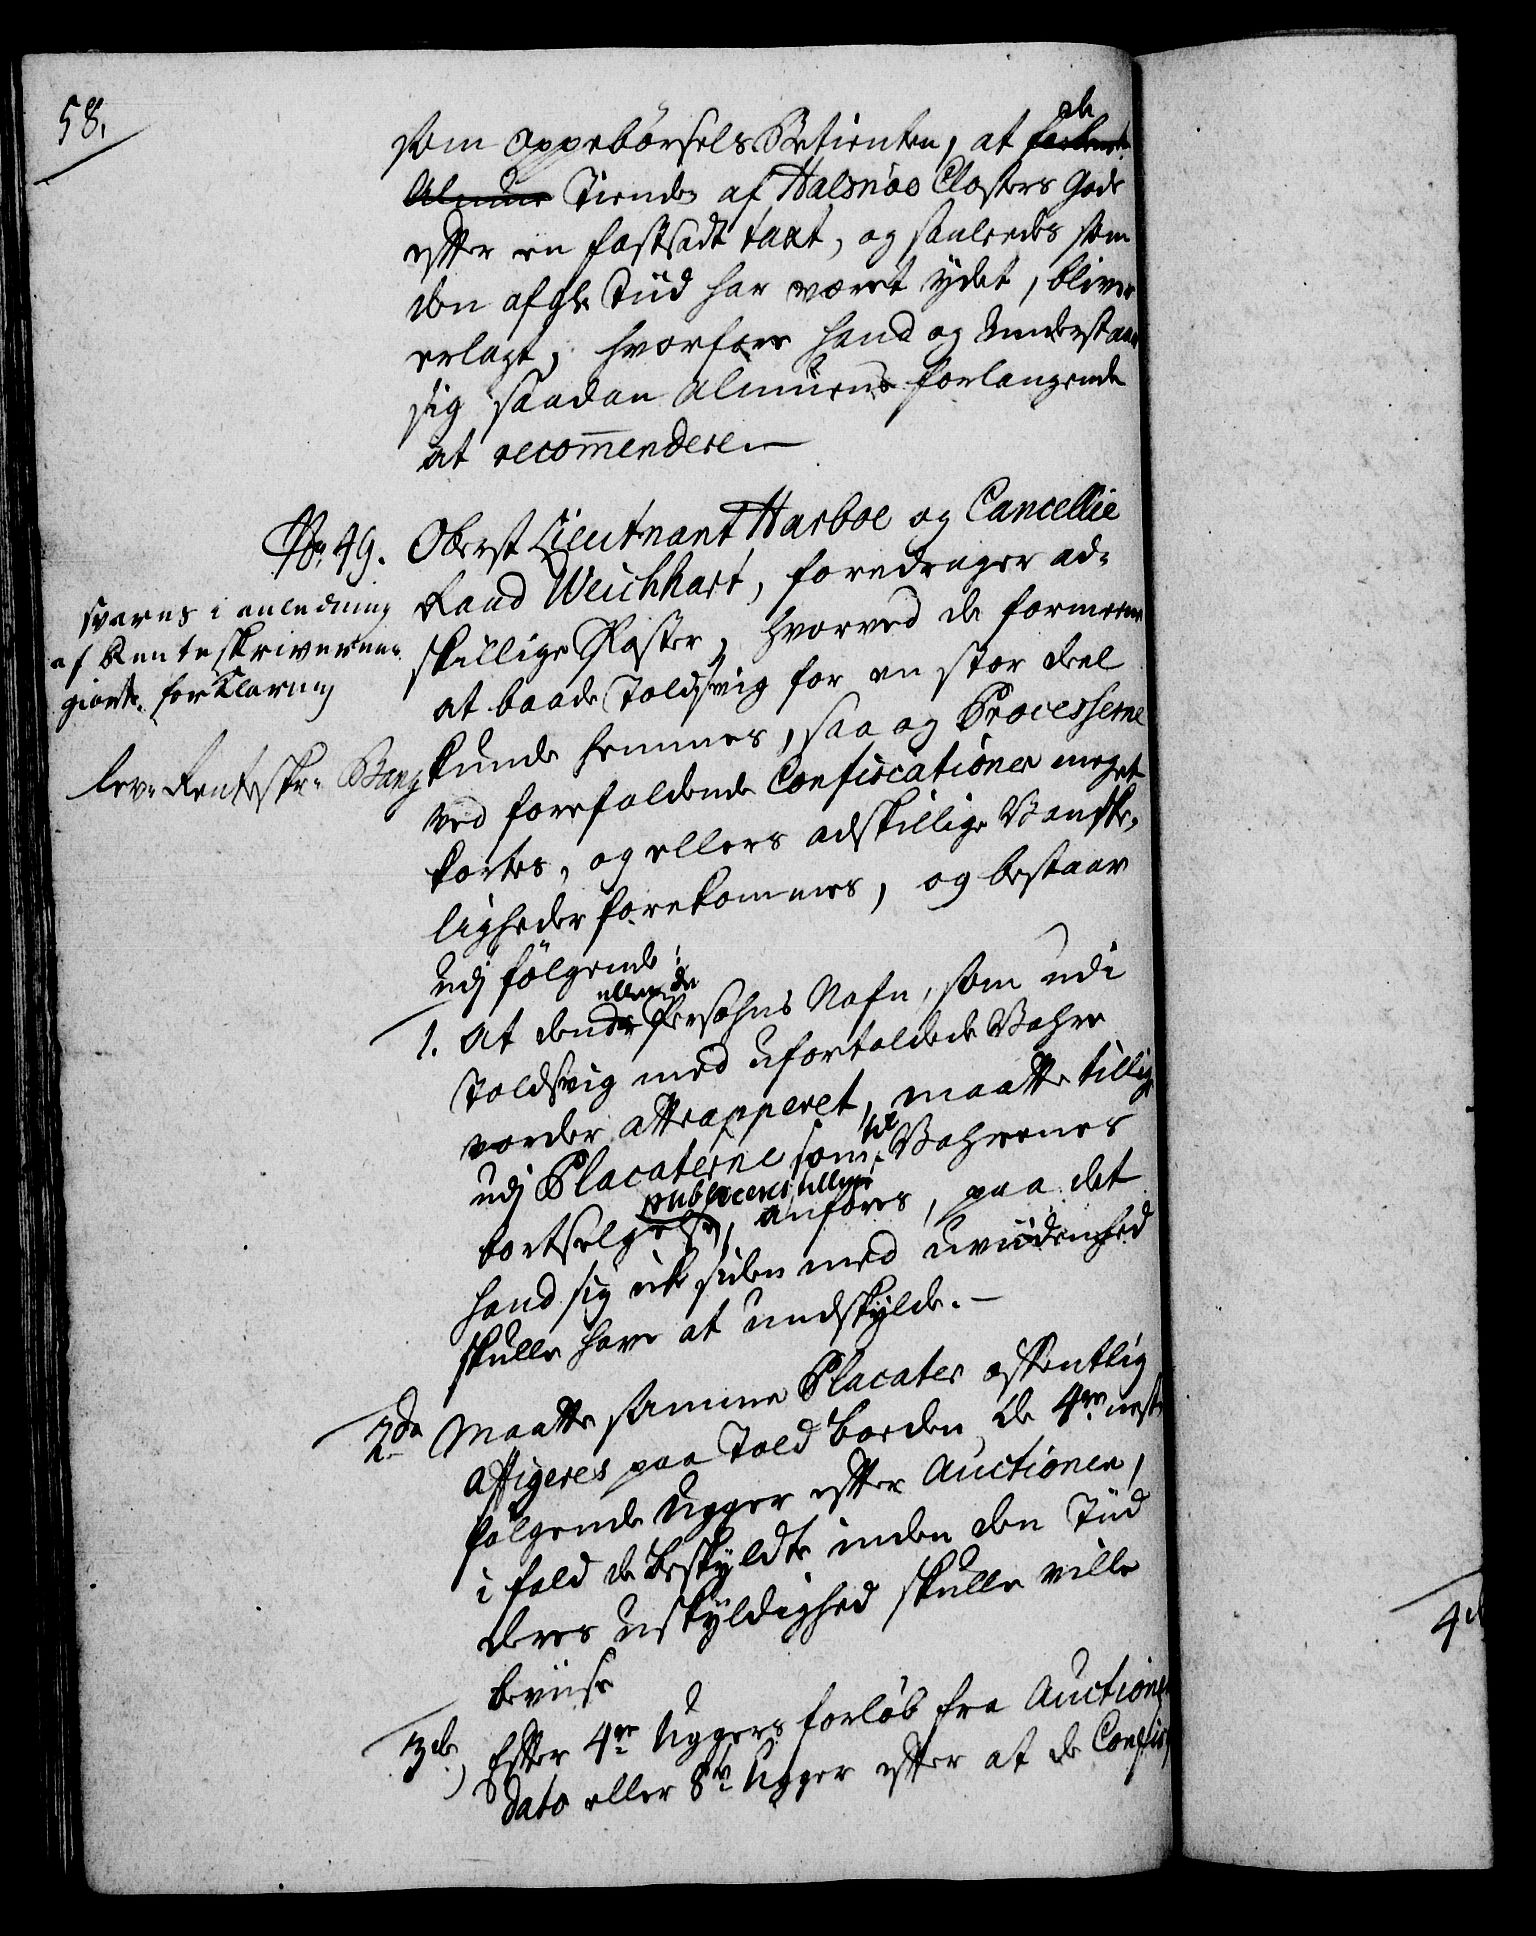 58.
som oppebørsels Betienten, at de
Almue Tiende af Halsnøe Closters Gods
efter en fastsadt taxt, og saaledes som
den afgl. Tiid har været ÿdet, bliver
erlagt, hvorfore hand og understaar
sig saadan Almuens forlangende
at recommendere
No. 49. Oberst Lieutnant Harboe og Cancellie
Raad Weichhart, foredrager ad-
skillige Poster, hvorved de formeene
at baade Toldsvig for en stor deel
kunde hemmes, saa og Processerne
ved forefaldende Confiscationer meget
kortes, og ellers adskillige Vanske-
ligheder forekommes, og bestaar
udj følgende:
svares i anledning
af Renteskriverens
giorte forklaring
lev. Renteskr. Bang
1. At den eller de Persohns Nafn, som udi
Toldsvig med ufortoldede Vahre
vorder attrapperet, maatte tillige
udj Placaterne som til Vahrenes
bortselgelse publiceres tillige, anføres, paa det
hand sig ik siden med uviidenhed
skulle have at undskylde.
2do Maatte samme Placater offentlig
affigeres paa Told boeden de 4re nest
følgende Ugger efter Auctionen,
i fald de beskyldte inden den Tiid
deres uskyldighed skulle ville
beviise
3de, Efter 4re Uggers forløb fra Auctions
dato eller 8te Ugger efter at de Confis
4d